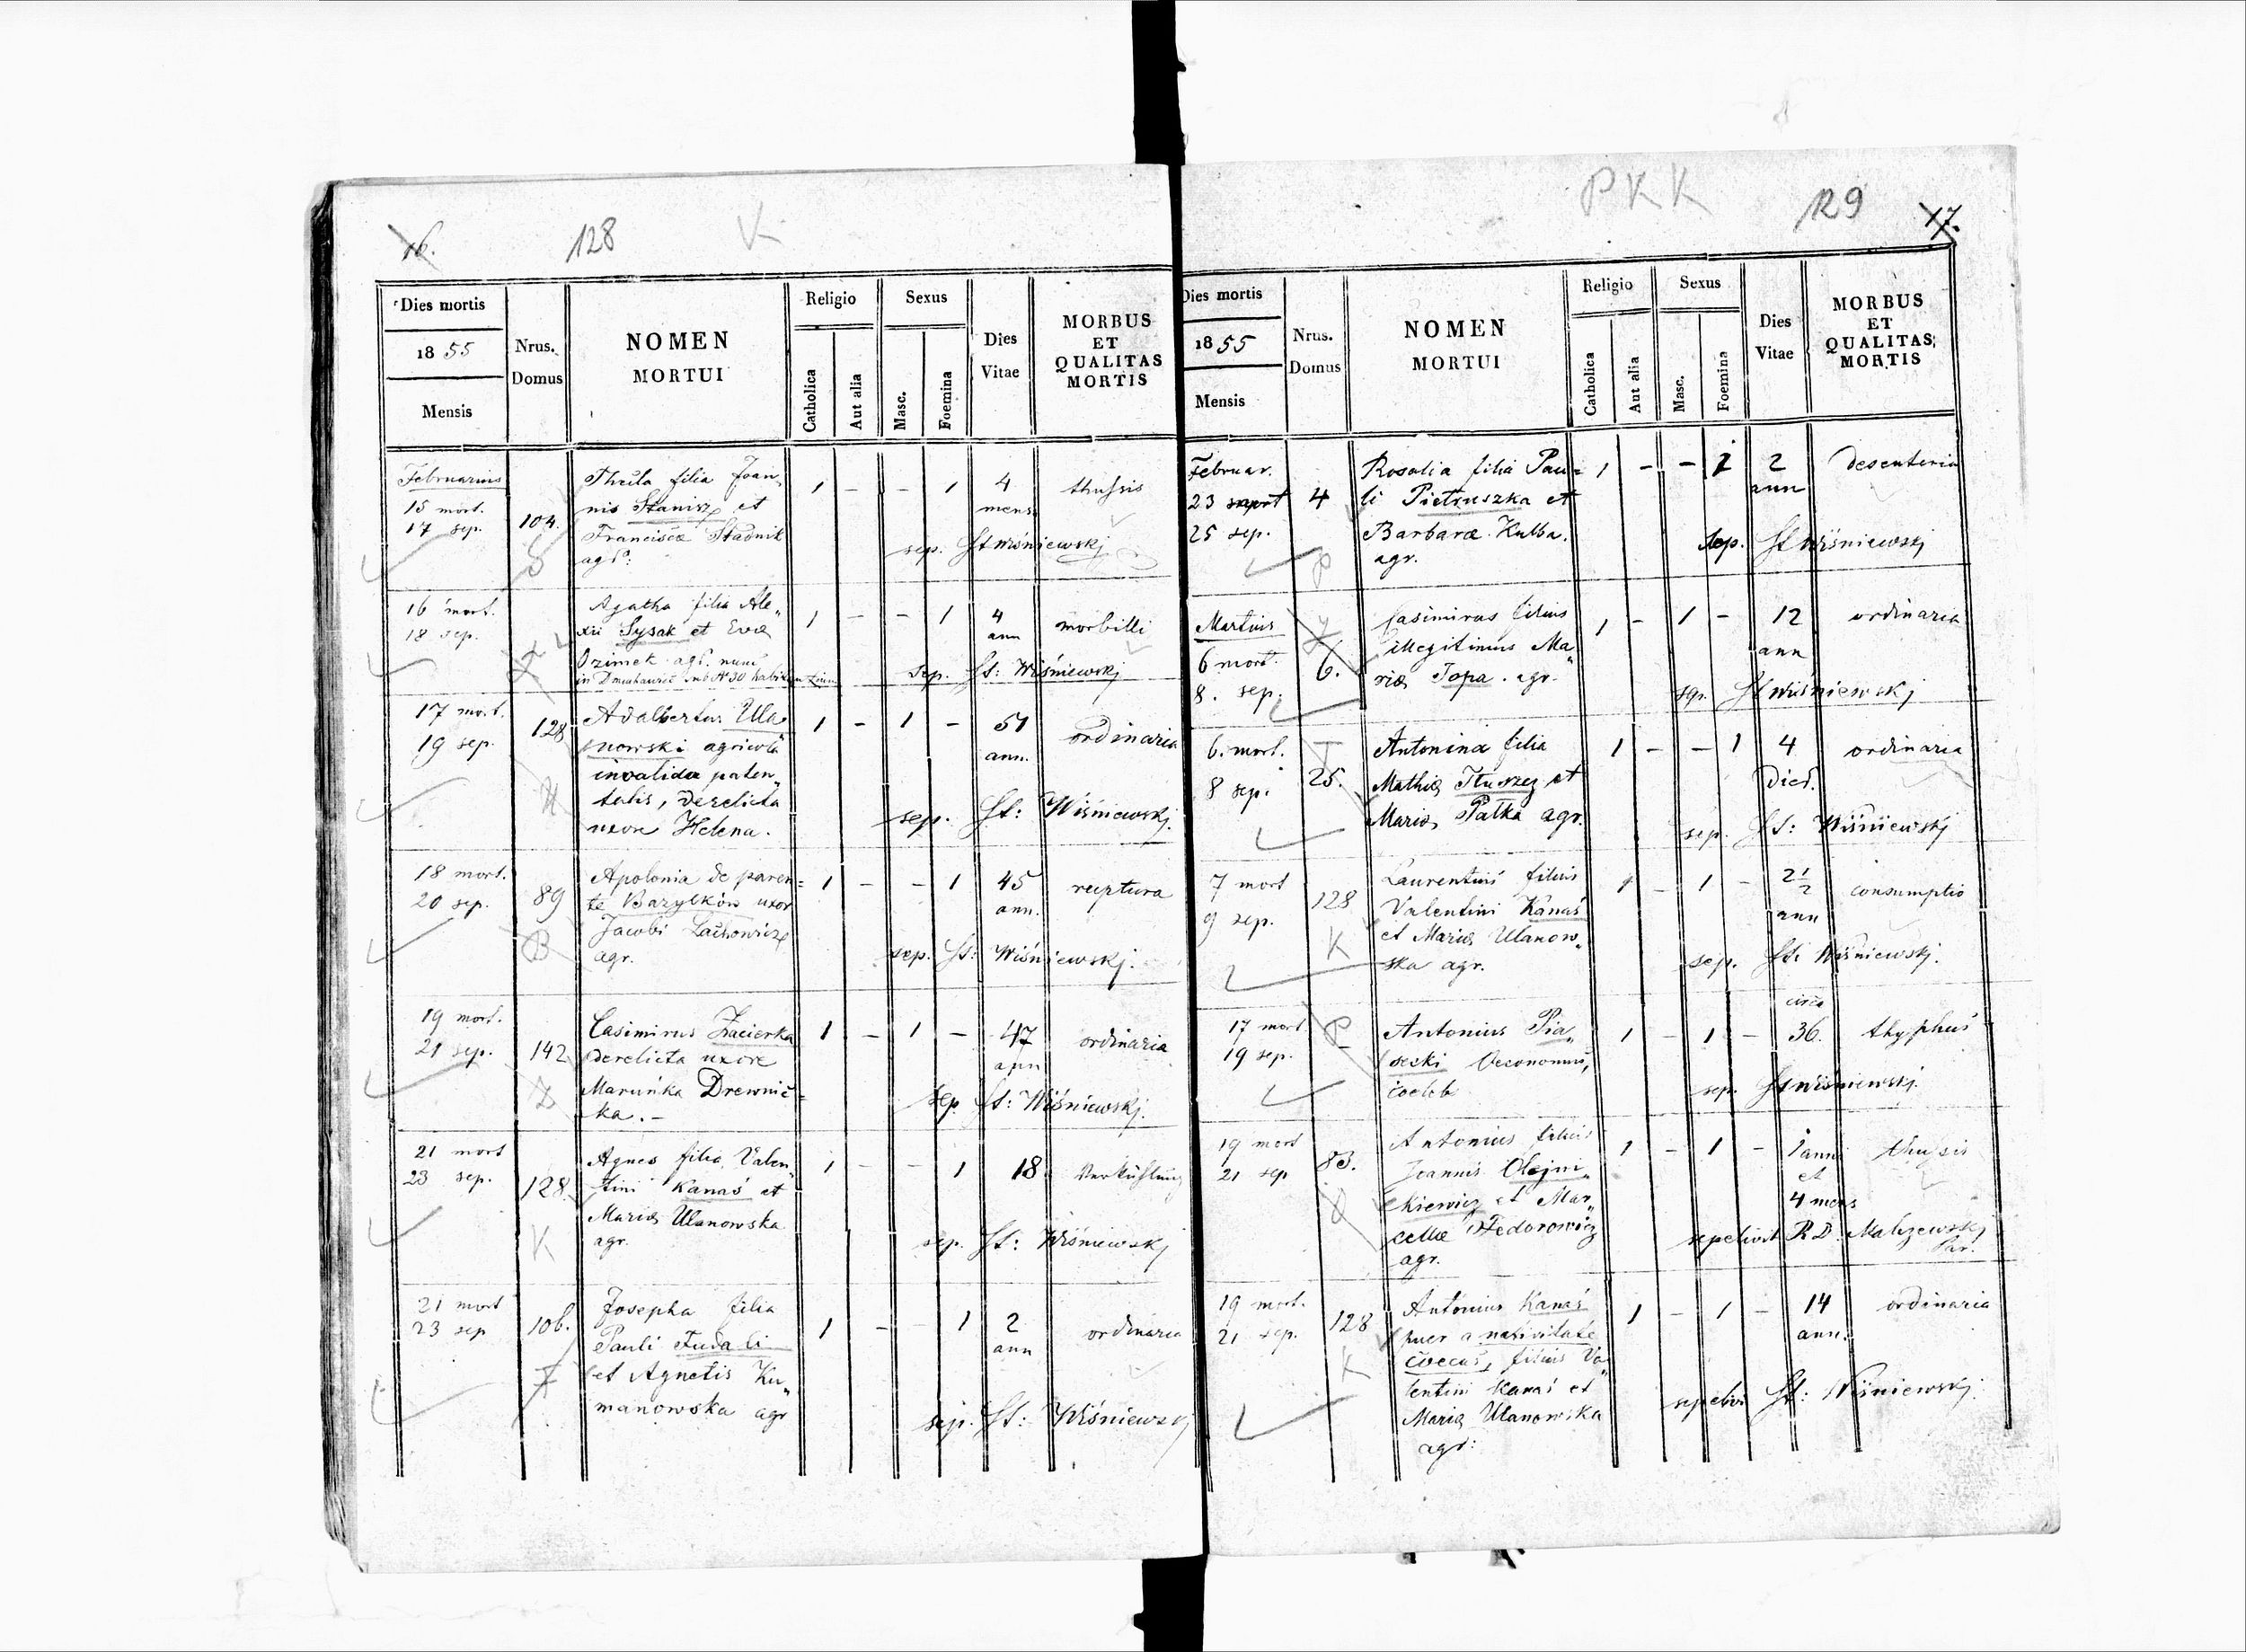 16.
128
K
Dies mortis
1855
Mensis
Nrus.
Domus
NOMEN
MORTUI
Religio
Catholica
Aut alia
Sexus
Masc.
Foemina
Dies
Vitae
MORBUS
ET
QUALITAS
MORTIS
Februarius
15 mort.
17 sep.
104.
Thecla filia Joan„
nis Stanisz et
Franciscæ Stadnik
agr.
1 - - 1
4
mens.
thussis
sep. St Wiśniewskj
16 mort.
18 sep.
Agatha filia Ale„
xii Sysak et Evæ
Ozimek agr. nunc
sub N 30
1 - - 1
4
ann
morbilli
sep. St: Wiśniewskj
17 mort.
19 sep.
128
Adalbertus Ula
nowski agricola
invalidus paten„
talis, derelicta
uxore Helena.
1 - 1 -
51
ann.
ordinaria
sep. St: Wiśniewskj.
18 mort.
20 sep.
89
B
Apolonia de paren=
te Bazylków uxor
Jacobi Lachowicz
agr.
1 - - 1
45
ann.
ruptura
sep. St: Wiśniewskj.
19 mort.
21 sep.
142
Z
Casimirus Zacierka
derelicta uxore
Maruńka Drewnic=
ka. -
1 - 1 -
47
ann
ordinaria
sep. St: Wiśniewskj.
21 mort
23 sep.
128.
K
Agnes filia Valen„
tini Kanaś et
Mariæ Ulanowska
agr.
1 - - 1
18.
Verkühlung
sep. St: Wiśniewskj
21 mort
23 sep
106.
F
Josepha filia
Pauli Fudali
et Agnetis Ku„
manowska agr
1 - - 1
2
ann
ordinaria
sep. St: Wiśniewskj
PKK
129
17.
Dies mortis
1855
Mensis
Nrus.
Domus
NOMEN
MORTUI
Religio
Catholica
Aut alia
Sexus
Masc.
Foemina
Dies
Vitae
MORBUS
ET
QUALITAS
MORTIS
Februar.
23 mort
25 sep.
4
P
Rosalia filia Pau=
li Pietruszka et
Barbaræ Kulba.
agr.
1 - - 1
2
ann
desenteria
sep. St Wiśniewskj
Martius
6 mort.
8. sep.
6.
Casimirus filius
illegitimus Ma„
riæ Topa. agr.
1 - 1 -
12
ann
ordinaria
sep. St Wiśniewskj
6. mort.
8 sep.
25.
T
Antonina filia
Mathiæ Tłuszcz et
Mariæ Pałka agr.
1 - - 1
4
dier.
ordinaria
sep. St: Wiśniewskj
7 mort
9 sep.
128
K
Laurentius filius
Valentini Kanaś
et Mariæ Ulanow„
ska agr.
1 - 1 -
2½
ann
consumptio
sep. St: Wiśniewskj.
17 mort
19 sep.
P
-
Antonius Pia„
secki Oeconomus,
coeleb
1 - 1 -
circa
36.
thyphus
sep. St Wiśniewskj.
19 mort
21 sep
83.
O
Antonius filius
Joannis Olejni„
kiewicz et Mar„
cellæ Fedorowicz
agr.
1 - 1 -
1 anni
et
4 mens
thusis
sepelivit R D. Malczewskj
Par.
19 mort.
21 sep.
128
K
Antonius Kanaś
puer a nativitate
coecus, filius Va„
lentini Kanaś et
Mariæ Ulanowska
agr:
1 - 1 -
14
ann.
ordinaria
sepelivi St: Wiśniewskj.